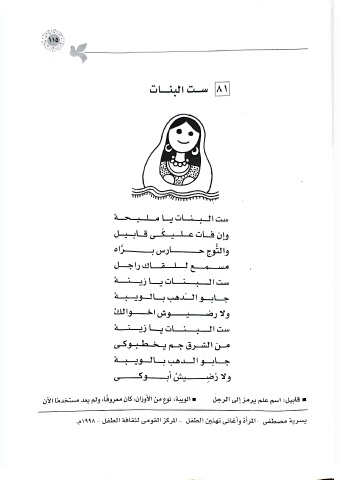 ١١٥
٨١ ست البنات
ست البنات يا مليحة
وإن فات عليكى قابيل
والنُوج حارس برَّاه
مسمع للقاك راجل
ست البنات يا زينة
جابو الدهب بالويبة
ولا رضيوش اخوالك
ست البنات يا زينة
من الشرق جم يخطبوكى
جابو الدهب بالويبة
ولا رُضِيش أبوكى
■ قابيل: اسم علم يرمز إلى الرجل ■ الويبة، نوع من الأوزان، كان معروفًا، ولم يعد مستخدمًا الآن
يسرية مصطفى المرأة وأغانى تهنين الطفل - المركز القومى لثقافة الطفل - ١٩٩٨م.